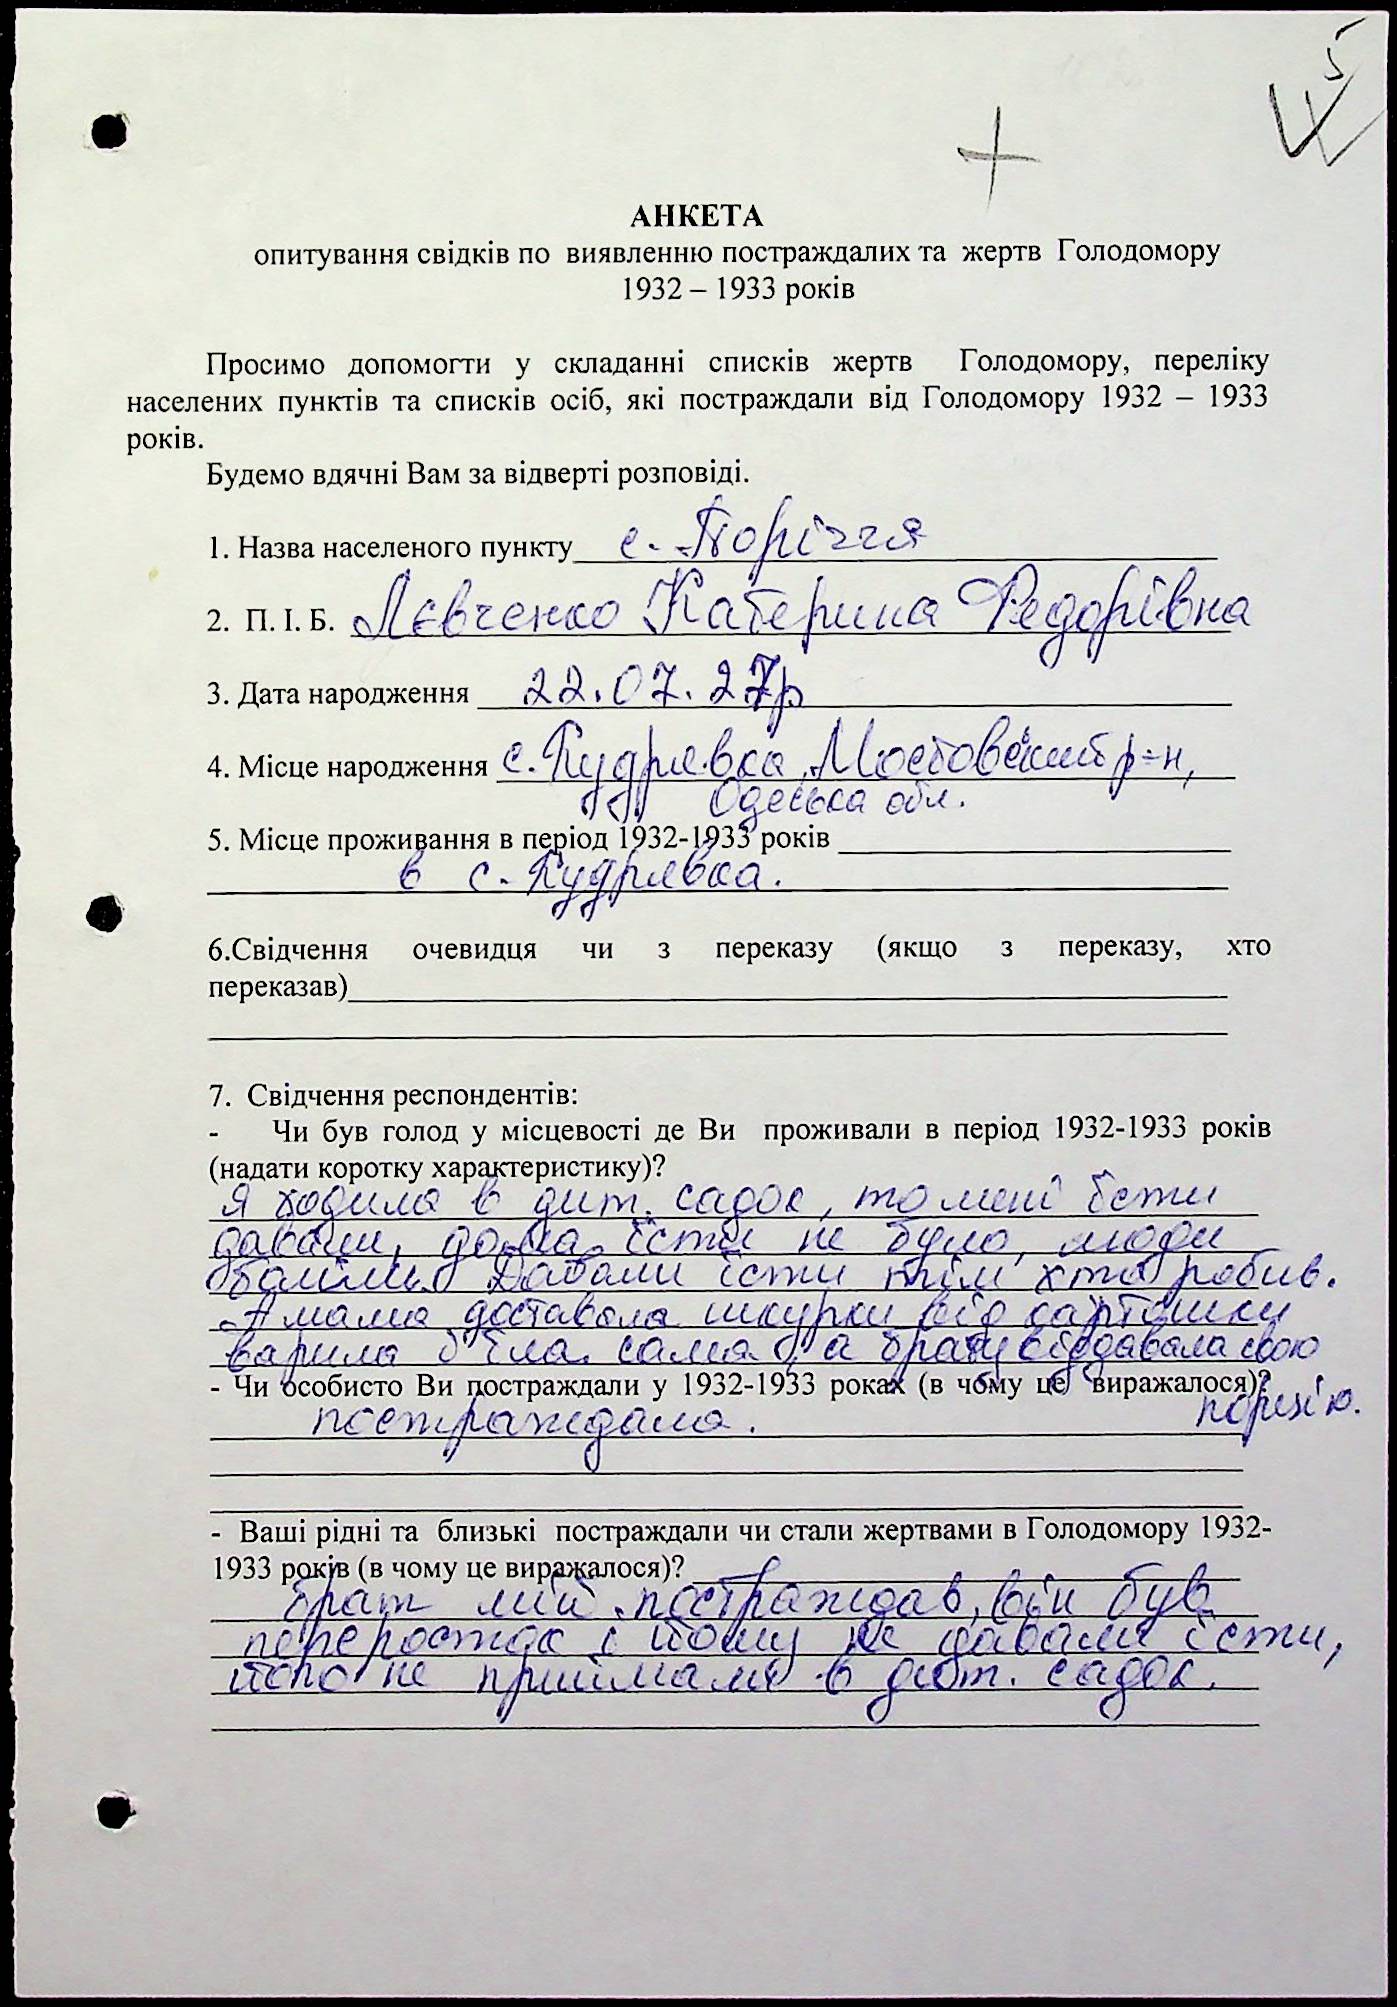 5
+
АНКЕТА
опитування свідків по виявленню постраждалих та жертв Голодомору
1932 – 1933 років
Просимо допомогти у складанні списків жертв Голодомору, переліку
населених пунктів та списків осіб, які постраждали від Голодомору 1932 – 1933
років.
Будемо вдячні Вам за відверті розповіді.
1. Назва населеного пункту с. Поріччя
2. П. І. Б. Лєвченко Катерина Федорівна
3. Дата народження 22.07.27р
4. Місце народження с. Кудрявка, Мостовський р-н,
Одеська обл.
5. Місце проживання в період 1932-1933 років
в с. Кудрявка.
6.Свідчення очевидця чи з переказу (якщо з переказу, хто
переказав)
7. Свідчення респондентів:
- Чи був голод у місцевості де Ви проживали в період 1932-1933 років
(надати коротку характеристику)?
я ходила в дит. садок, то мені їсти
давали, дома їсти не було, люди
боліли. Давали їсти тим хто робив.
А мама доставала шкурки від картошки
варила і їла сама, а брату віддавала свою
- Чи особисто Ви постраждали у 1932-1933 роках (в чому це виражалося)?
порцію.
постраждала.
- Ваші рідні та близькі постраждали чи стали жертвами в Голодомору 1932-
1933 років (в чому це виражалося)?
брат мій постраждав, він був
переросток і йому не давали їсти,
його не приймали в дит. садок.